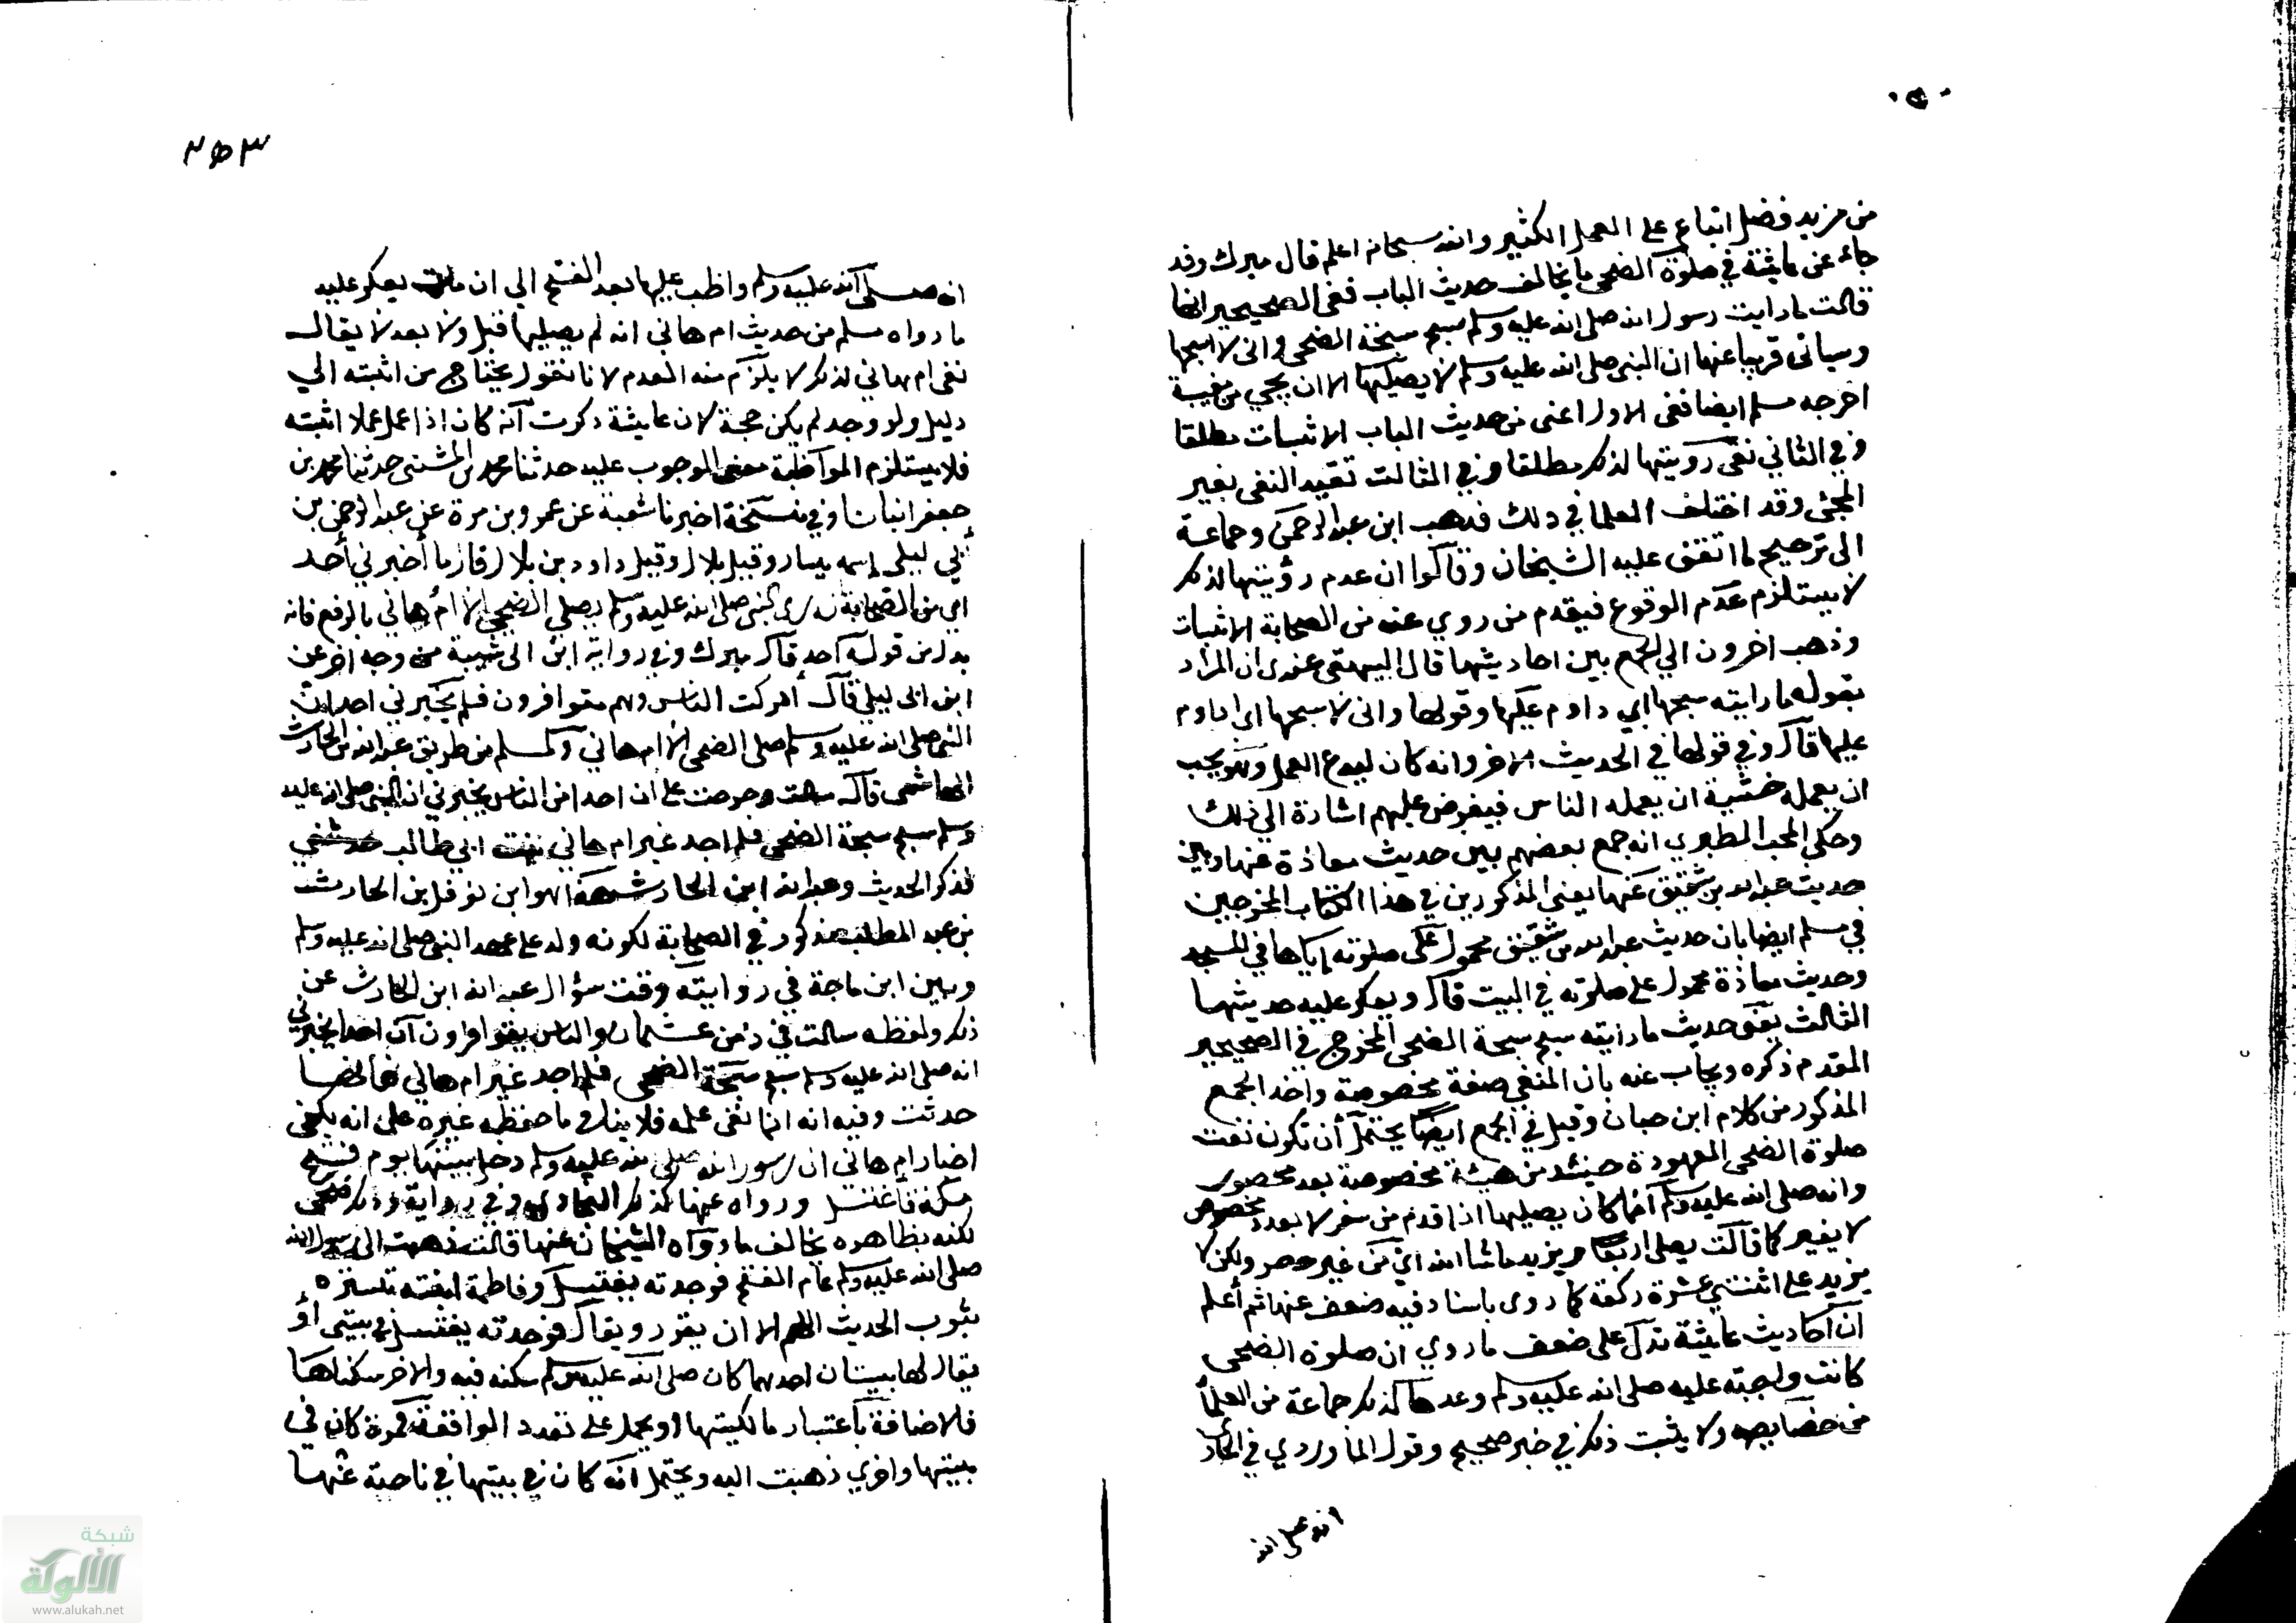 من مزيد فضل اتباع على العمل الكثير والله سبحانه اعلم قال ميرك وقد
جاء عن عايشة في صلوة الضحى ما يخالف حديث الباب ففي الصحيحين انها
قالت ما رايت رسول الله صلى الله عليه وسلم سبح سبحة الضحى واني لاسبحها
وسياتي قريبا عنها ان النبي صلى الله عليه وسلم لا يصليها الا ان يجي من مغيبة
اخرجه مسلم ايضا ففي الاول اعني من حديث الباب الاثبات مطلقا
وفي الثاني نفى رويتها لذلك مطلقا وفي الثالث تقيد النفي بغير
المجئ وقد اختلف العلما في ذلك فذهب ابن عبد الرحمن وجماعة
الى ترجيح ما اتفق عليه الشيخان وقالوا ان عدم رؤيتها لذلك
لا يستلزم عدم الوقوع فيقدم من روي عنه من الصحابة الاثبات
وذهب اخرون الي الجمع بين احاديثها قال البيهقي عندي ان المراد
بقولها ما رايته سبحها اي داوم عليها وقولها واني لاسبحها اي اداوم
عليها قال وفي قولها في الحديث الاخر وانه كان ليدع العمل وهو يحب
ان يعمله خشية ان يعمله الناس فيفرض عليهم اشارة الي ذلك
وحكى المحب الطبري انه جمع بعضهم بين حديث معاذة عنها وبين
حديث عبد الله بن شقيق عنها يعني المذكورين في هذا الكتاب المخرجين
في مسلم ايضا بان حديث عبد الله بن شقيق محمول على صلوته اياها في المسجد
وحديث معاذة محمول على صلوته في البيت قال ويعكر عليه حديثها
الثالث يعني حديث ما رايته سبح سبحة الضحى المخرج في الصحيحين
المقدم ذكره ويجاب عنه بان المنفي صفة مخصوصة واخذ الجمع
المذكور من كلام ابن حبان وقيل في الجمع ايضا يحتمل أن تكون نفت
صلوة الضحى المعهودة حينئذ من هيئة مخصوصة بعدد مخصوص
وانه صلى الله عليه وسلم انما كان يصليها اذا قدم من سفر لا بعدد مخصوص
لا بغيره كما قالت يصلي اربعا ويزيد ما شا الله اي من غير حصر ولكن لا
يزيد على اثنتي عشرة ركعة كما روى باسناد فيه ضعف عنها ثم أعلم
ان احاديث عايشة تدل على ضعف ما روي ان صلوة الضحى
كانت واجبة عليه صلى الله عليه وسلم وعدها لذلك جماعة من العلمأ
من خصايصه ولا يثبت ذلك في خبر صحيح وقول الماوردي في الحاوي
انه صلى الله
٢٥٣
انه صلى الله عليه وسلم واظب عليها بعد الفتح الي ان مات يعكر عليه
ما رواه مسلم من حديث ام هاني انه لم يصليها قبل ولا بعد لا يقال
نفي ام هاني لذلك لا يلزم منه العدم لانا نقول يحتاج من اثبته الي
دليل ولو وجد لم يكن حجة لان عايشة ذكرت انه كان اذا عمل عملا اثبته
فلا يستلزم المواظبة معنى الوجوب عليه حدثنا محمد بن المثنى حدثنا محمد بن
جعفر انبانا وفي نسخة اخبرنا شعبة عن عمرو بن مرة عن عبد الرحمن بن
أبي ليلى إسمه يسار وقيل بلال وقيل داود بن بلال قال ما أخبرني أحد
اي من الصحابة انه رأى النبي صلى الله عليه وسلم يصلي الضحى الا امُّ هاني بالرفع فانه
بدل من قوله احد قال ميرك وفي رواية ابن ابي شيبة من وجه اخر عن
ابن ابي ليلى قال أدركت الناس وهم متوافرون فلم يخبرني احد ان
النبي صلى الله عليه وسلم صلى الضحى الا ام هاني ولمسلم من طريق عبد الله بن الحارث
الهاشمي قال سالت وحرصت على ان احدا من الناس يخبرني ان النبي صلى الله عليه
وسلم سبح سبحة الضحى فلم اجد غير ام هاني بنت ابي طالب حدثتني
فذكر الحديث وعبد الله ابن الحارث هذا هو ابن نوفل بن الحارث
بن عبد المطلب مذكور في الصحابة لكونه ولد على عهد النبي صلى الله عليه وسلم
وبين ابن ماجة في روايته وقت سؤال عبد الله ابن الحارث عن
ذلك ولفظه سالت في زمن عثمان والناس متوافرون ان احدا يخبرني
انه صلى الله عليه وسلم سبح سبحة الضحى فلم اجد غير ام هاني فانها
حدثت وفيه انه انما نفى علمه فلا ينافي ما حفظه غيره على انه يكفي
اخبار ام هاني ان رسول الله صلى الله عليه وسلم دخل بيتها يوم فتح
مكة فاغتسل ورواه عنها كذلك البخاري وفي رواية وذلك ضحى
لكنه بظاهره يخالف ما رواه الشيخان عنها قالت ذهبت الى رسول الله
صلى الله عليه وسلم عام الفتح فوجدته يغتسل وفاطمة ابنته تستره
بثوب الحديث اللهم الا ان يقدر ويقال فوجدته يغتسل في بيتي أو
يقال لها بيتان احدهما كان صلى الله عليه وسلم سكنه فيه والاخر سكناها
فالاضافة باعتبار مالكيتها او يحمل على تعدد الواقعة فمرة كان في
بيتها واخري ذهبت اليه ويحتمل انه كان في بيتها في ناحية عنها